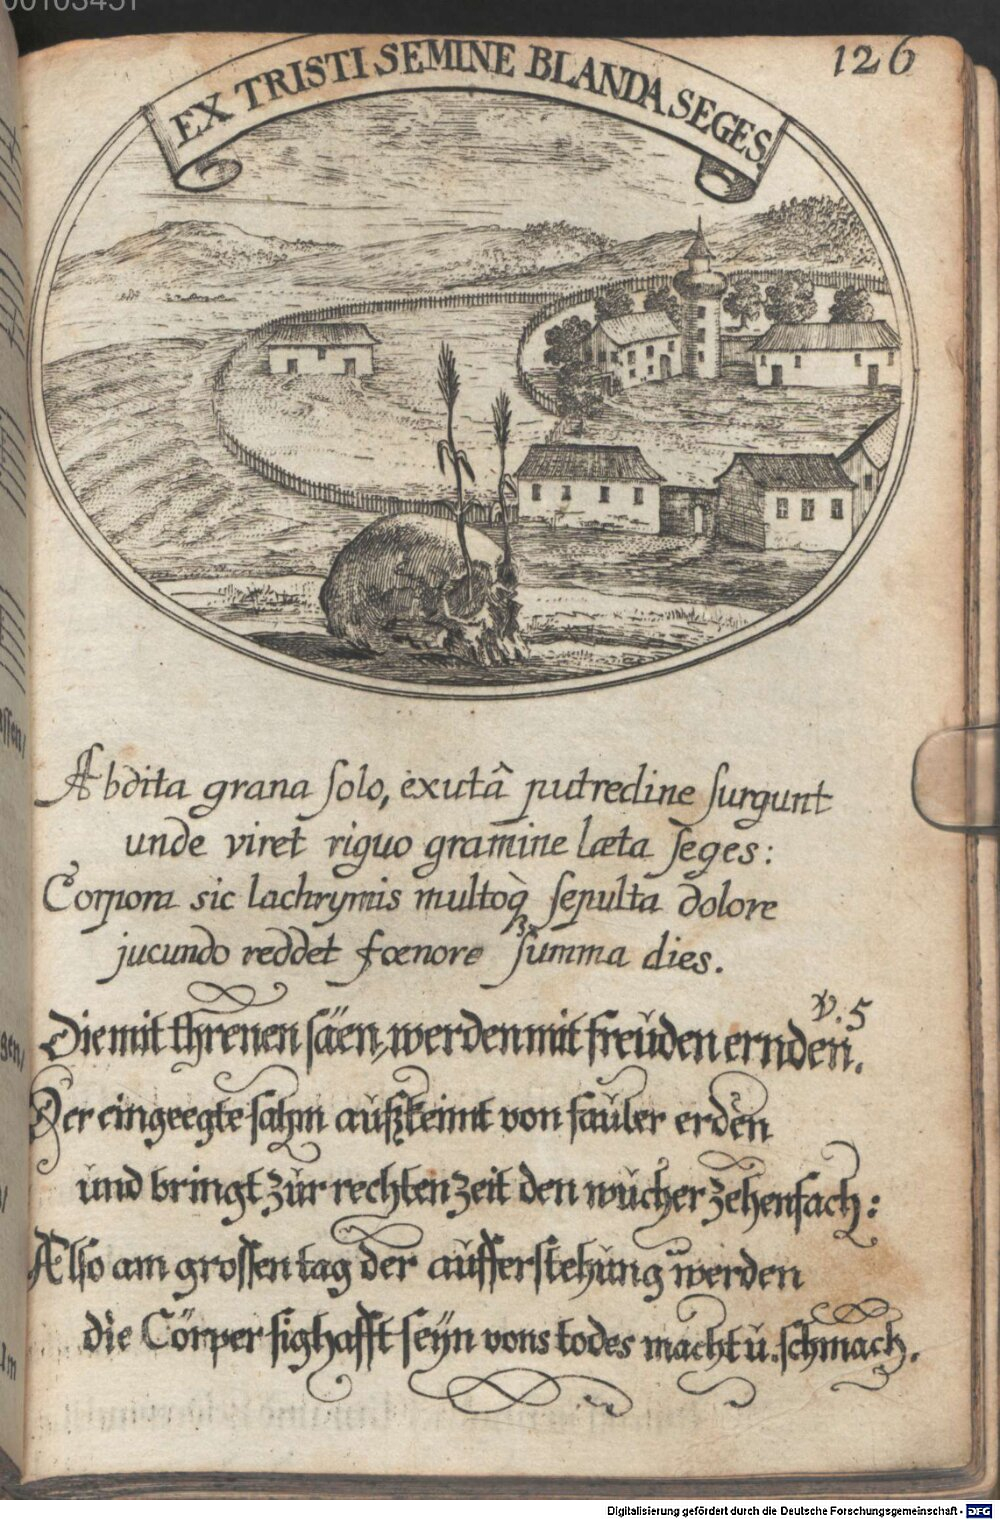 00103451
126
EX TRISTI SEMINE BLANDA SEGES.
Abdita grana solo, exutâ putredine surgunt
unde viret riguo gramine læta seges:
Corpora sic lachrymis multoq̀ʒ sepulta dolore
jucundo reddet fœnore summa dies.
v. 5
Die mit threnen säen, werden mit freŭden ernden.
Der eingeegte sahm aŭßkeimt von faŭler erden
ŭnd bringt zŭr rechten zeit den wŭcher zehenfach:
Also am grossen tag der aŭfferstehŭng werden
die Cörper sighafft seÿn vons todes macht ŭ. schmach.
Digitalisierung gefördert durch die Deutsche Forschungsgemeinschaft - DFG